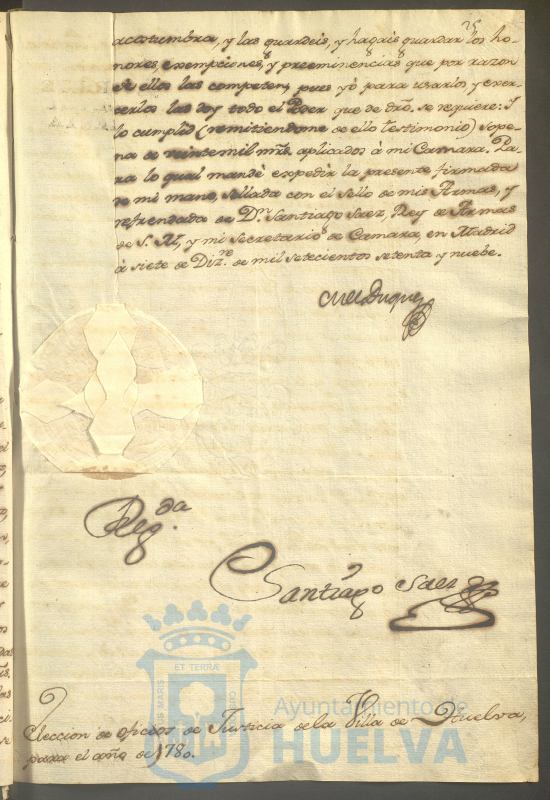 25
acostumbra, y las guardeis, y hagais guardar los ho-
nores, exempciones, y preeminencias que por razon
de ellos las competen, pues yó para usarlos y exer-
cerlos las doy todo el Poder que de dro. se requiere: Y
lo cumplid (remitiendome de ello testimonio) sope-
na de veinte mil mrs. aplicados à mi Camara. Pa-
ra lo qual mandé expedir la presente firmada
de mi mano, sellada con el Sello de mis Armas, y
refrendada de Dn. Santiago Saez, Rey de Armas
de S. M, y mi Secretario de Camara, en Madrid
à siete de Dizre. de mil setecientos setenta y nuebe.
Duque
Reg.da
Santiago Saez
ET TERRÆ
MARIS
Ayuntamiento de
HUELVA
Eleccion de oficios de Justicia de la Villa de Huelva,
para el año de 1780.